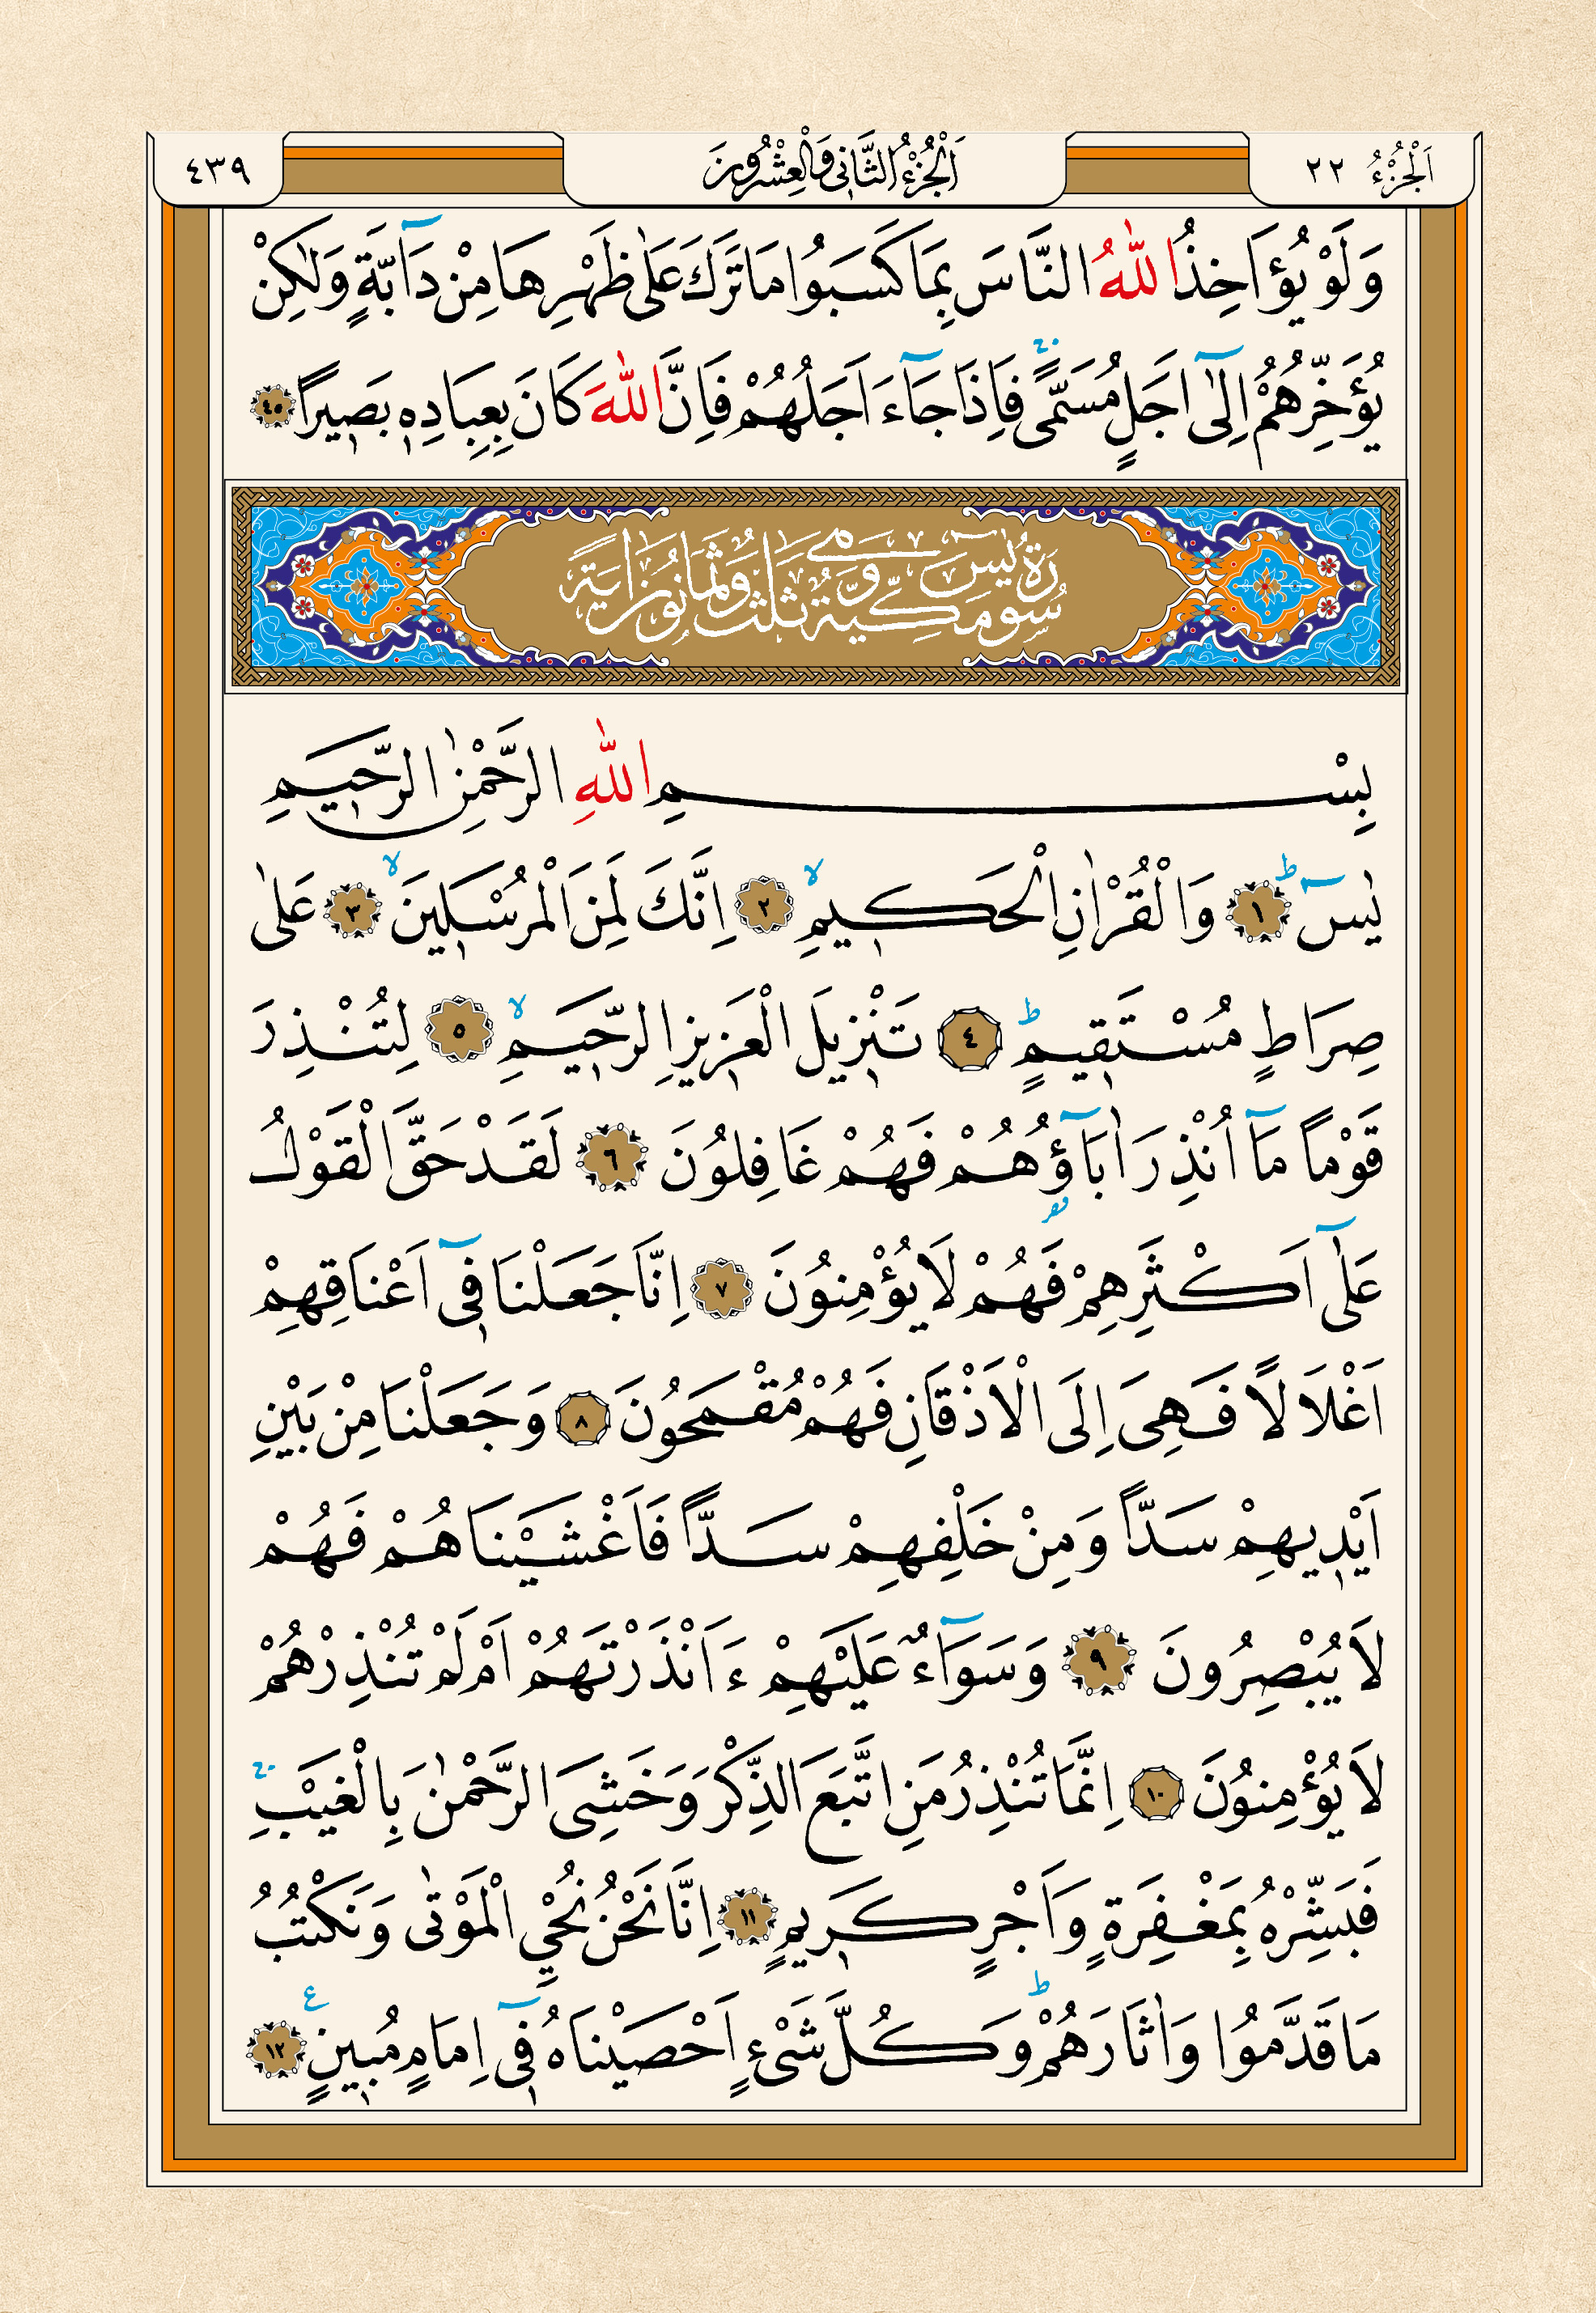 اَلْجُزْءُ ٢٢
اَلْجُزْءُ الثَّانِى وَالْعِشْرُونَ
٤٣٩
وَلَوْ يُؤَاخِذُ اللّٰهُ النَّاسَ بِمَا كَسَبُوا مَا تَرَكَ عَلٰى ظَهْرِهَا مِنْ دَٓابَّةٍ وَلٰكِنْ
يُؤَخِّرُهُمْ اِلٰٓى اَجَلٍ مُسَمًّىۚ فَاِذَا جَٓاءَ اَجَلُهُمْ فَاِنَّ اللّٰهَ كَانَ بِعِبَادِه۪ بَص۪يرًا ٤٥
سُورَةُ يٰسٓ مَكِّيَّةٌ وَهِىَ ثَلٰثٌ وَثَمَانُونَ اٰيَةً
بِسْمِ اللّٰهِ الرَّحْمٰنِ الرَّح۪يمِ
يٰسٓۜ ١ وَالْقُرْاٰنِ الْحَك۪يمِۙ ٢ اِنَّكَ لَمِنَ الْمُرْسَل۪ينَۙ ٣ عَلٰى
صِرَاطٍ مُسْتَق۪يمٍۜ ٤ تَنْز۪يلَ الْعَز۪يزِ الرَّح۪يمِۙ ٥ لِتُنْذِرَ
قَوْمًا مَٓا اُنْذِرَ اٰبَٓاؤُ۬هُمْ فَهُمْ غَافِلُونَ ٦ لَقَدْ حَقَّ الْقَوْلُ
عَلٰٓى اَكْثَرِهِمْ فَهُمْ لَا يُؤْمِنُونَ ٧ اِنَّا جَعَلْنَا ف۪ٓى اَعْنَاقِهِمْ
اَغْلَالًا فَهِىَ اِلَى الْاَذْقَانِ فَهُمْ مُقْمَحُونَ ٨ وَجَعَلْنَا مِنْ بَيْنِ
اَيْد۪يهِمْ سَدًّا وَمِنْ خَلْفِهِمْ سَدًّا فَاَغْشَيْنَاهُمْ فَهُمْ
لَا يُبْصِرُونَ ٩ وَسَوَٓاءٌ عَلَيْهِمْ ءَاَنْذَرْتَهُمْ اَمْ لَمْ تُنْذِرْهُمْ
لَا يُؤْمِنُونَ ١٠ اِنَّمَا تُنْذِرُ مَنِ اتَّبَعَ الذِّكْرَ وَخَشِىَ الرَّحْمٰنَ بِالْغَيْبِۚ
فَبَشِّرْهُ بِمَغْفِرَةٍ وَاَجْرٍ كَر۪يمٍ ١١ اِنَّا نَحْنُ نُحْيِ الْمَوْتٰى وَنَكْتُبُ
مَا قَدَّمُوا وَاٰثَارَهُمْۜ وَكُلَّ شَىْءٍ اَحْصَيْنَاهُ ف۪ٓى اِمَامٍ مُب۪ينٍ ع ١٢